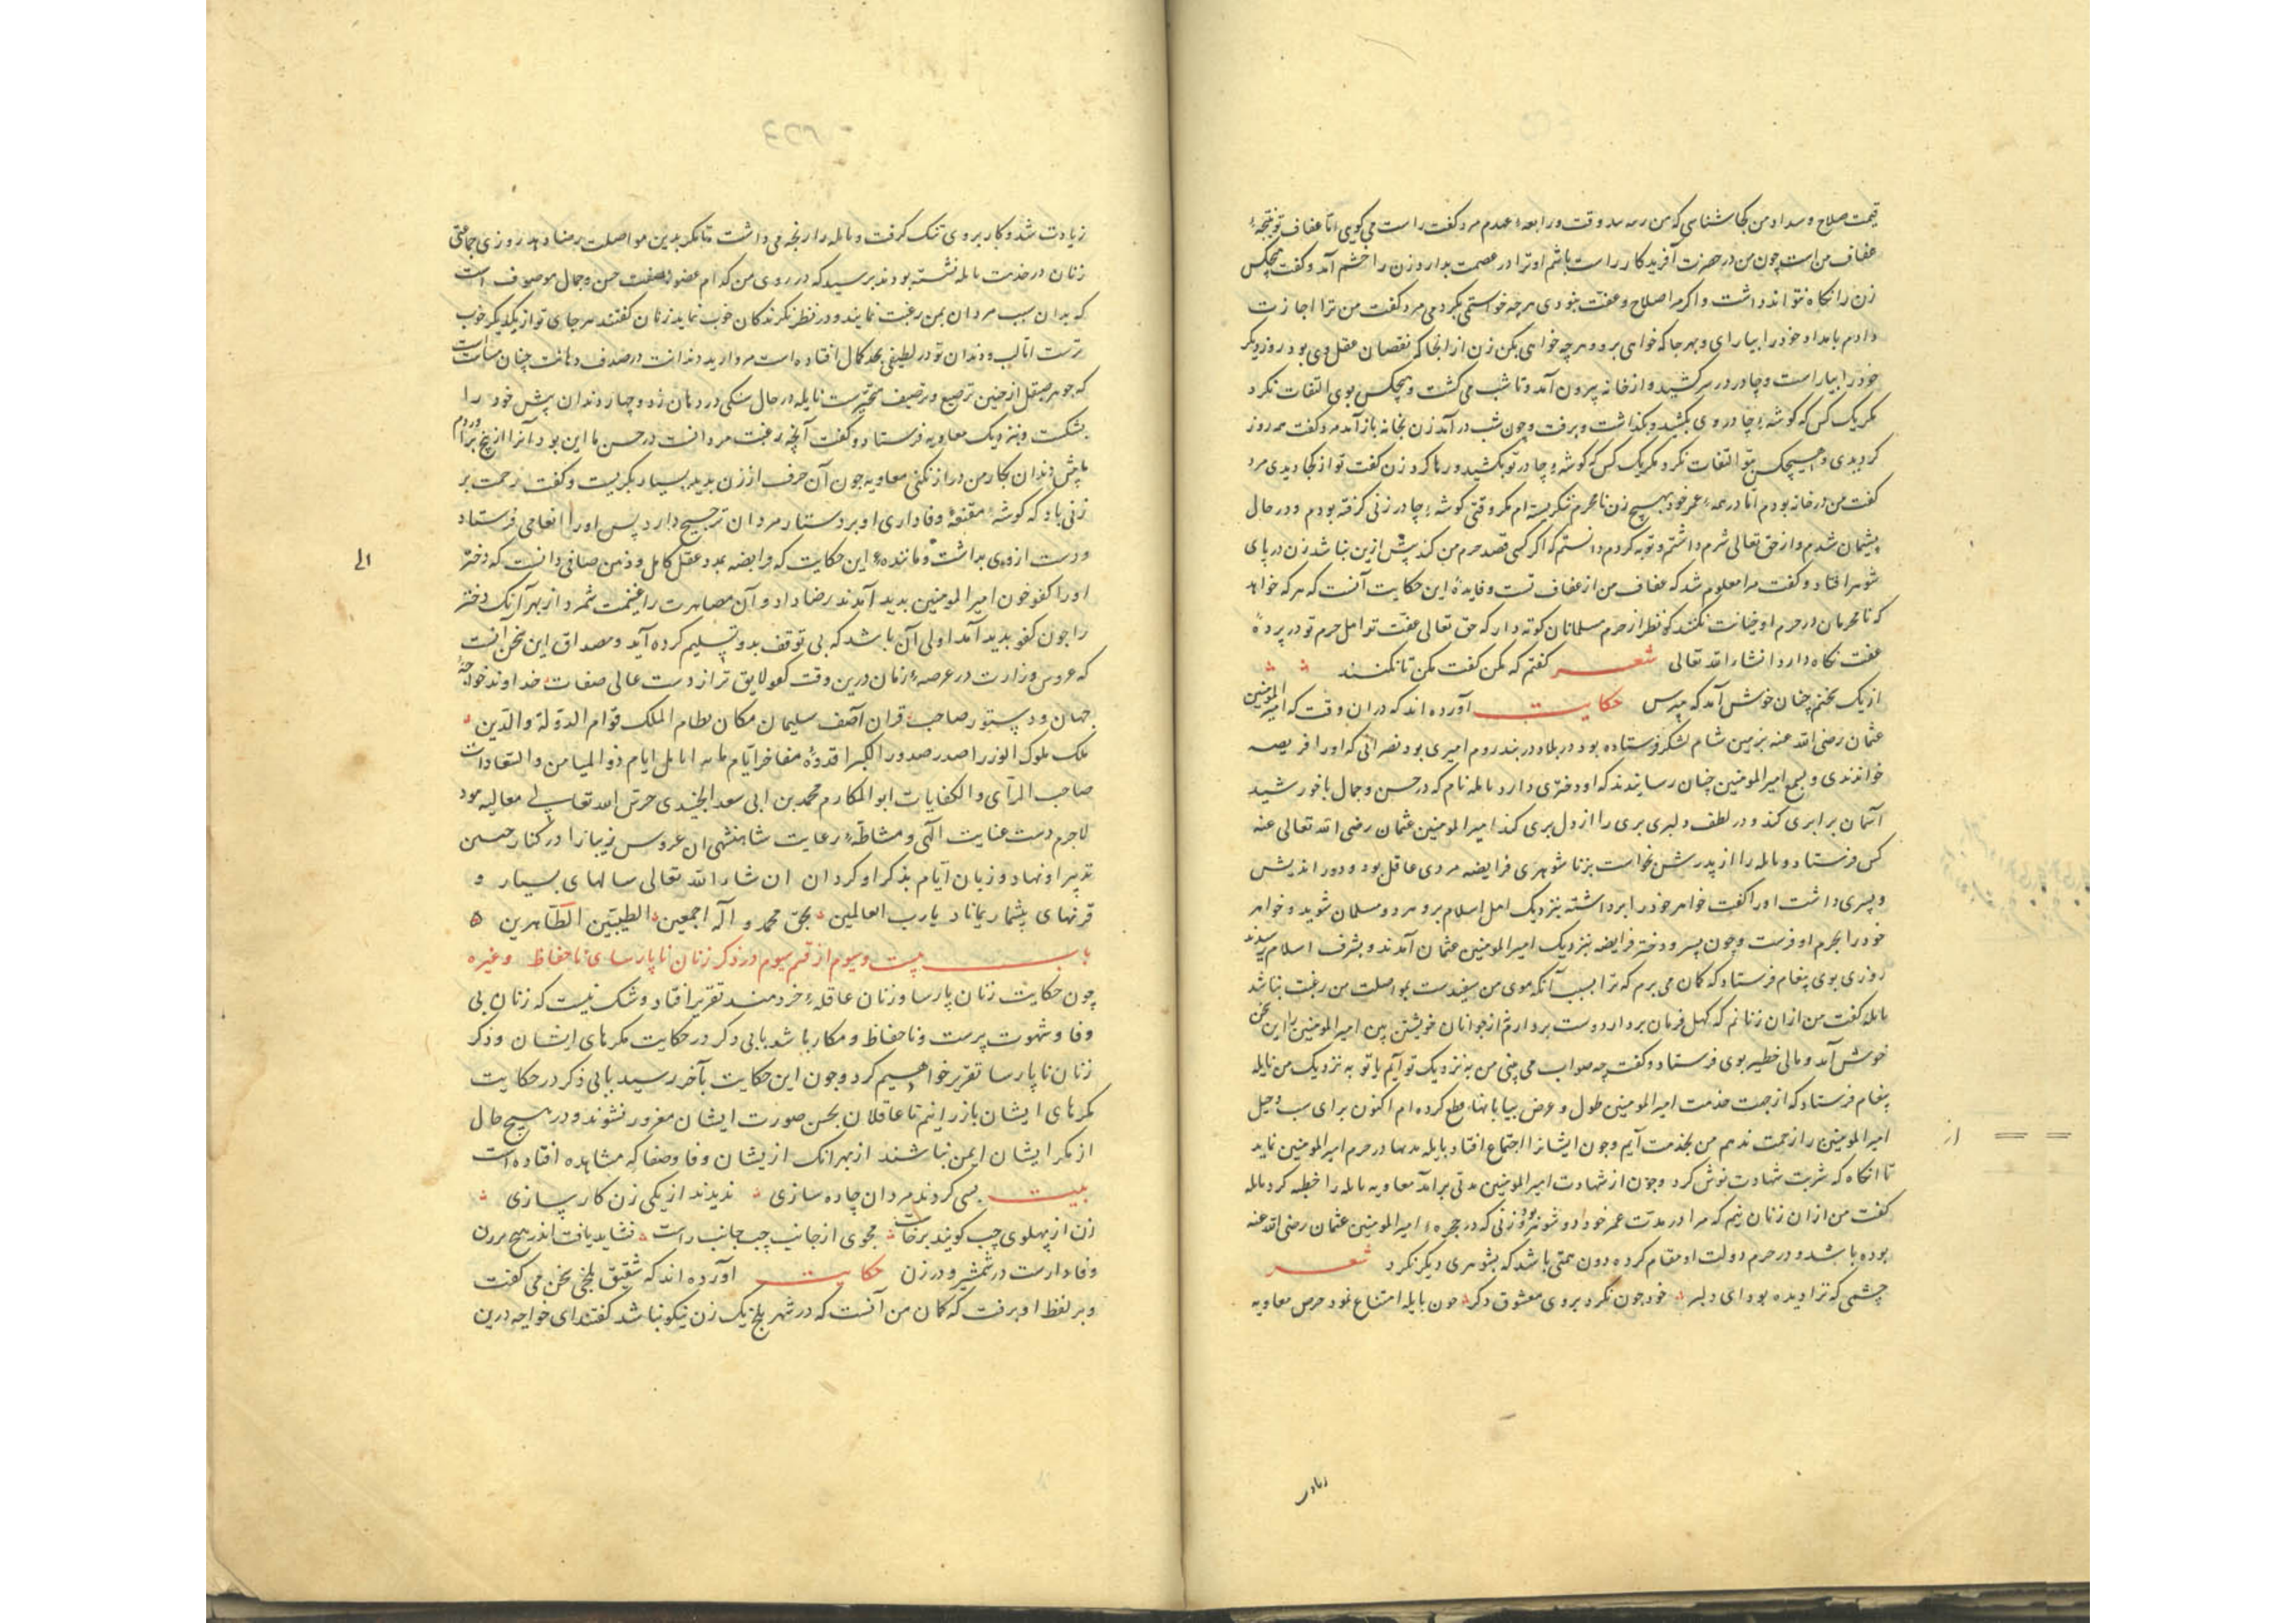 قیمت صلاح و سداد من کجا شناسی که من وقت و رابعهٔ عهدم مرد گفت راست می گویی امّا عفاف تو نتیجهٔ
عفاف من است چون من در حضرت آفریدکار راست باشم او ترا در عصمت بدارد زن را خشم آمد و گفت هیچکس
زن را نکاه نتواند داشت و اکر مرا صلاح و عفت نبودی هرچه خواستمی بکردمی مرد گفت من ترا اجازت
دادم بامداد خود را بیارای و بهر جا که خواهی برو و هرچه خواهی بکن زن از انجا که نقصان عقل وی بود روز دیکر
خود را بیاراست و چادر در سر کشید و از خانه بیرون آمد و تا شب می کشت و هیچکس بوی التفات نکرد
مکر یک کس که کوشهٔ چادر وی بکشید و بکذاشت و برفت و چون شب در آمد زن بخانه باز آمد مرد کفت همه روز
کردیدی و هیچکس بتو التفات نکرد مکر یک کس که کوشهٔ چادر تو بکشید و رها کرد زن کفت تو از کجا دیدی مرد
کفت من در خانه بودم امّا در همهٔ عمر خود بهیچ زن نامحرم ننکریسته ام مکر وقتی کوشهٔ چادر زنی کرفته بودم و در حال
پشیمان شدم و از حق تعالی شرم داشتم و توبه کردم دانستم که اکر کسی قصد حرم من کند پیش ازین نباشد زن در پای
شوهر افتاد و کفت مرا معلوم شد که عفاف من از عفاف تست و فایدهٔ این حکایت آنست که هر که خواهد
که نامحرمان در حرم او خیانت نکنند کو نظر از حرم مسلمانان کوته دار که حق تعالی عفت تو اهل حرم تو در پردهٔ
عفت نکاه دارد انشاء الله تعالی شعر کفتم که مکن کفت مکن تا نکنند
از یک سخنم چنان خوش آمد که مپرس حکایت آورده اند که در ان وقت که امیر المومنین
عثمان رضی الله عنه بزمین شام لشکر فرستاده بود در بلاد در بند روم امیری بود نصرانی که او را فریصه
خواندندی و بسمع امیر المومنین چنان رسانیدند که او دختری دارد نایله نام که در حسن و جمال با خورشید
آسمان برابری کند و در لطف و دلبری پری را از دل بری کند امیر المومنین عثمان رضی الله تعالی عنه
کس فرستاد و نایله را از پدرش بخواست بزناشوهری فرایضه مردی عاقل بود و دور اندیش
و پسری داشت او را کفت خواهر خود را برداشته بنزدیک اهل اسلام برو و مسلمان شوید و خواهر
خود را بحرم او فرست و چون پسر و دختر فرایضه بنزدیک امیر المومنین عثمان آمدند و بشرف اسلام رسیدند
روزی بوی پیغام فرستاد که کمان می برم که ترا بسبب آنکه موی من سفیدست بمواصلت من رغبت نباشد
نایله کفت من از ان زنانم که کهل فرمان بردار دوست بردارم از جوانان خویشتن بین امیر المومنین را این سخن
خوش آمد و مالی خطیر بوی فرستاد و کفت چه صواب می بینی من به نزدیک تو آیم یا تو به نزدیک من نایله
پیغام فرستاد که از جهت خدمت امیر المومنین طول و عرض بیابانها قطع کرده ام اکنون برای
امیر المومنین را زحمت ندهم من بخدمت آیم و چون ایشانرا اجتماع افتاد نایله مدتها در حرم امیر المومنین بماند
تا انکاه که شربت شهادت نوش کرد و چون از شهادت امیر المومنین مدتی برآمد معاویه نایله را خطبه کرد نایله
کفت من از ان زنان نیم که مرا در مدت عمر خود دو شوهر بود و زنی که در حجرهٔ امیر المومنین عثمان رضی الله عنه
بوده باشد و در حرم دولت او مقام کرده دون همتی باشد که بشوهری دیکر نکرد شعر
چشمی که ترا دیده بود ای دلبر خود چون نکرد بروی معشوق دکر چون نایله امتناع نمود حرص معاویه
زیادت
زیادت شد و کار بر وی تنک کرفت و نایله را رنجه می داشت تا مکر بدین مواصلت رضا دهد روزی جماعتی
زنان در خدمت نایله نشسته بودند پرسید که در روی من کدام عضو بصفت حسن و جمال موصوف است
که بدان سبب مردان بمن رغبت نمایند و در نظر نکرندکان خوب نماید زنان کفتند هر جای تو از یکدیکر خوب
ترست امّا لب و دندان تو در لطیفی بحد کمال افتاده است مروارید دندانت در صدف دهانت چنان است
که جوهر صیقل از چنین ترصیع و ترصیف متحیرست نایله در حال سنکی در دهان زد و چهار دندان پیش خود را
بشکست و بنزدیک معاویه فرستاد و کفت آنچه رغبت مردانست در حسن ما این بود آنرا از بیخ برآوردم
تا پیش دندان بکار من دراز نکنی معاویه چون آن حرف از زن بدید بسیار بکریست و کفت رحمت بر
زنی باد که کوشهٔ مقنعهٔ وفاداری او بر دستار مردان ترجیح دارد پس او را انعامی فرستاد
و دست از وی بداشت و ماننده این حکایت که فرایضه بمدد عقل کامل و ذهن صافی دانست که دختر
الی
او را کفو چون امیر المومنین بدید آمدند رضا داد و آن مصاهرت را غنیمت شمرد از بهر آنک دختر
را چون کفو بدید آمد اولی آن باشد که بی توقف بدو تسلیم کرده آید و مصداق این سخن آنست
که عروس وزارت در عرصهٔ زمان درین وقت کفو لایق تر از دست عالی صفات خداوند خواجهٔ
جهان و دستور صاحب قران آصف سلیمان مکان نظام الملک قوام الدولة والدین
ملک ملوک الوزرا صدر صدور الکبرا قدوهٔ مفاخر ایام ذو المیامن والسعادات
صاحب الرأی والکفایات ابو المکارم محمد بن ابی سعد الجنیدی حرس الله تعالی معالیه بود
لاجرم دست عنایت الهی و مشاطهٔ رعایت شاهنشهی ان عروس زیبا را در کنار حسن
تدبیر او نهاد و زبان ایام بذکر او کردان ان شاء الله تعالی سالهای بسیار و
قرنهای بیشمار بماناد یا رب العالمین بحق محمد و اله اجمعین الطیبین الطاهرین ۵
باب بیست و سیوم از قسم سیوم در ذکر زنان ناپارسای ناحفاظ و غیره
چون حکایت زنان پارسا و زنان عاقلهٔ خردمند تقریر افتاد و شک نیست که زنان بی
وفا و شهوت پرست و ناحفاظ و مکار باشد بابی دکر در حکایت مکرهای ایشان و ذکر
زنان ناپارسا تقریر خواهیم کرد و چون این حکایت بآخر رسید بابی ذکر در حکایت
مکرهای ایشان باز رانیم تا عاقلان بحسن صورت ایشان مغرور نشوند و در هیچ حال
از مکر ایشان ایمن نباشند از بهر انک از یشان وفا و صفا کم مشاهده افتاده است
بیت بسی کردند مردان چاره سازی ندیدند از یکی زن کار سازی
زن از پهلوی چپ کویند برخاست مجوی از جانب چپ جانب راست نشاید یافت اندر هیچ برزن
وفا در اسب و در شمشیر و در زن حکایت آورده اند که شقیق بلخی سخن می کفت
و بر لفظ او برفت که کمان من آنست که در شهر بلخ یک زن نیکو نباشد کفتند ای خواجه درین